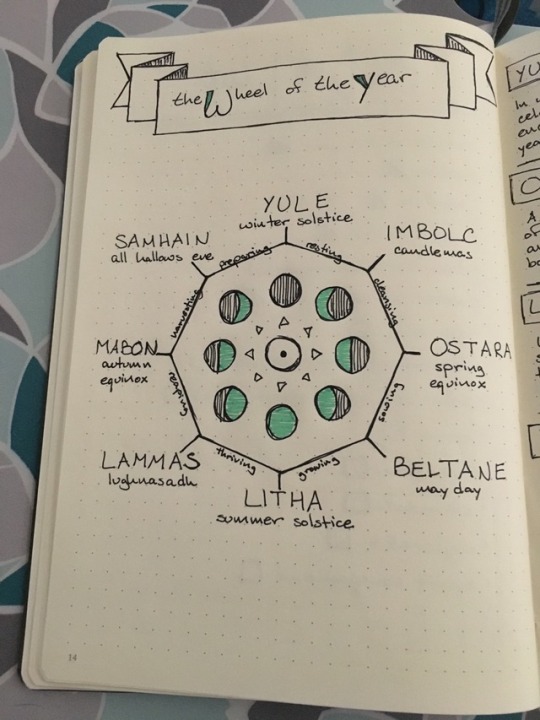 the Wheel of the Year
YULE
winter solstice
IMBOLC
candlemas
SAMHAIN
all hallows eve
preparing
resting
cleansing
harvesting
MABON
autumn
equinox
OSTARA
spring
equinox
reaping
sowing
LAMMAS
lughnasadh
thriving
growing
BELTANE
may day
LITHA
summer solstice
14
YU
In